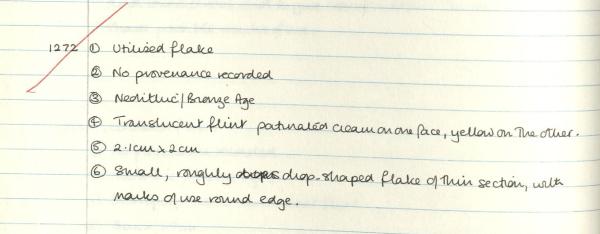 1272 ① Utilised flake
② No provenance recorded
③ Neolithic/Bronze Age
④ Translucent flint patinated cream on one face, yellow on the other.
⑤ 2.1cm x 2cm
⑥ Small, roughly drop-shaped flake of thin section, with
marks of use round edge.